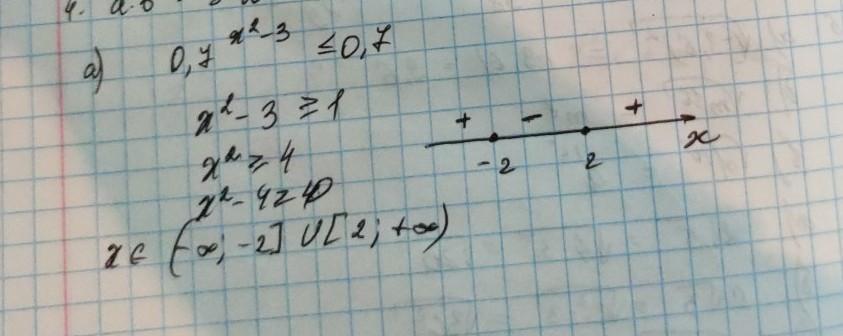 а) 0,7^(x²-3) ≤ 0,7
x² - 3 ≥ 1
x² ≥ 4
x² - 4 ≥ 0
+ - +
-2 2 x
x ∈ (-∞; -2] ∪ [2; +∞)